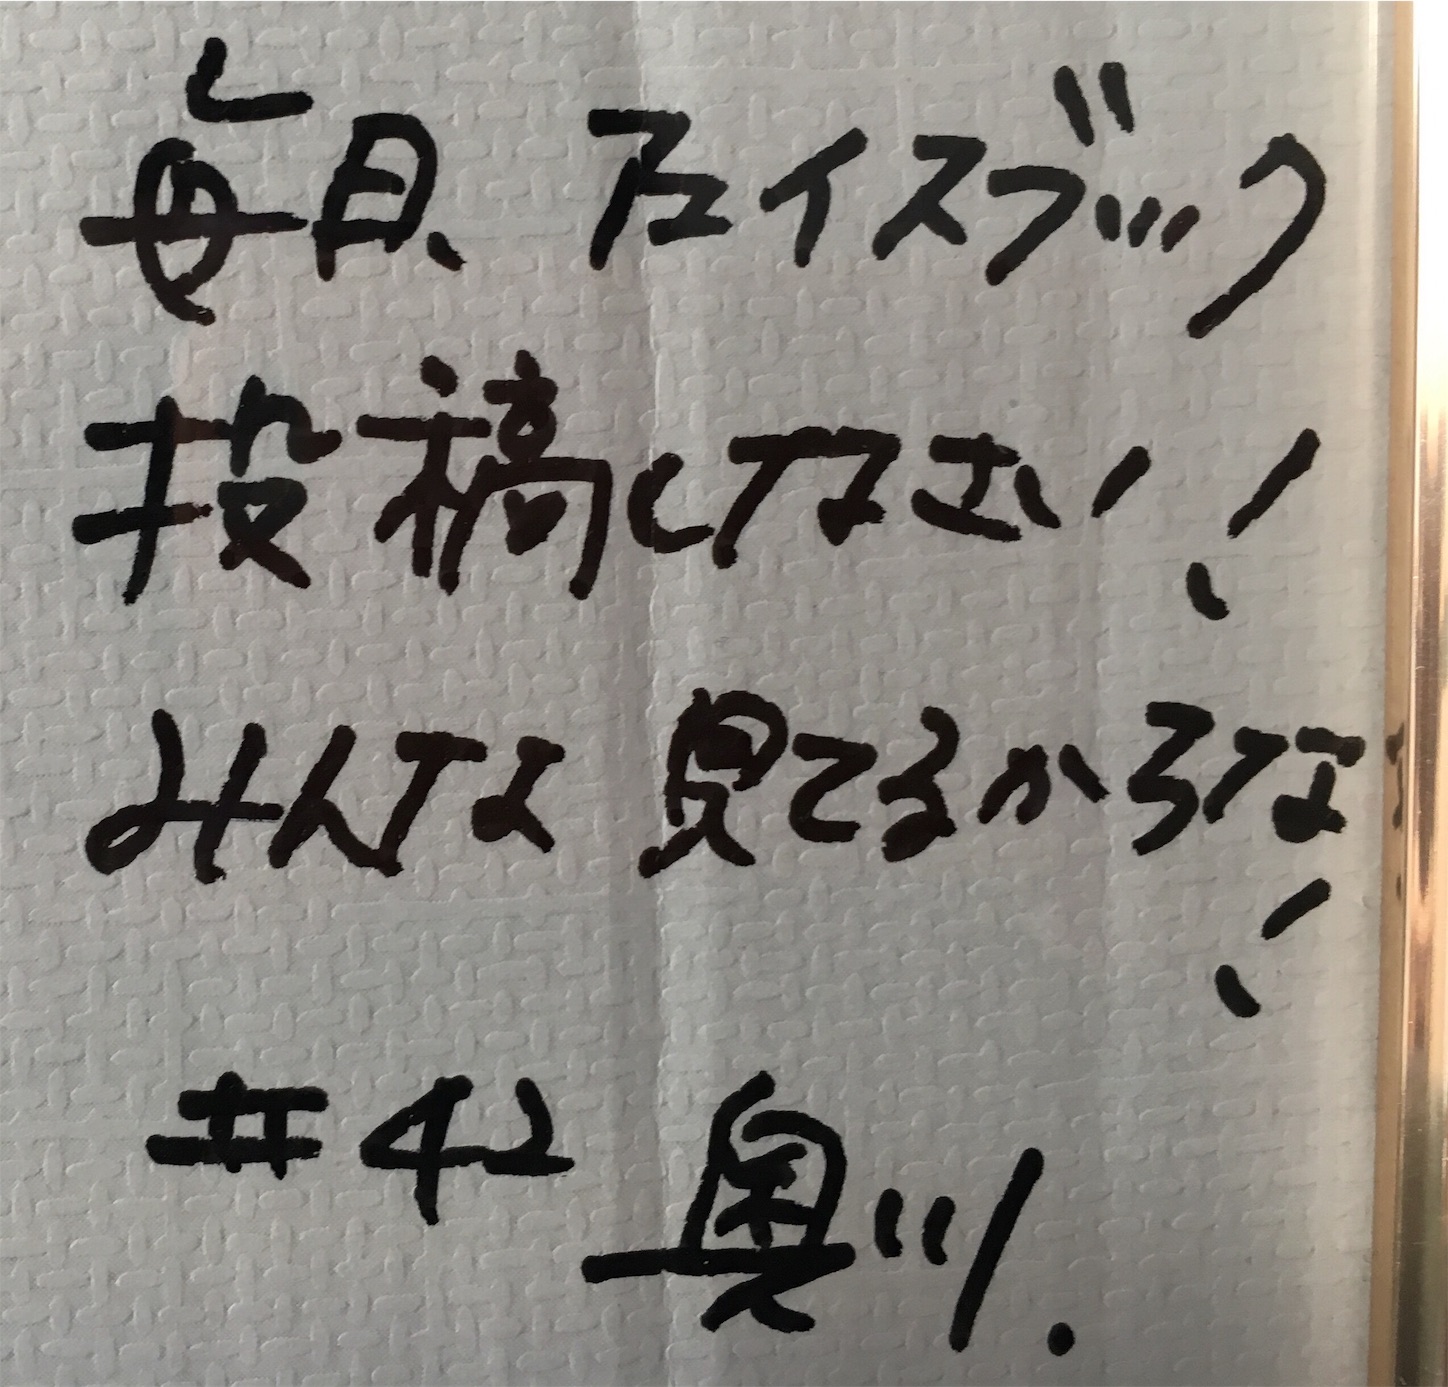 毎日、フェイスブック
投稿しなさい!
みんな見てるからな
!
#42 奥川.